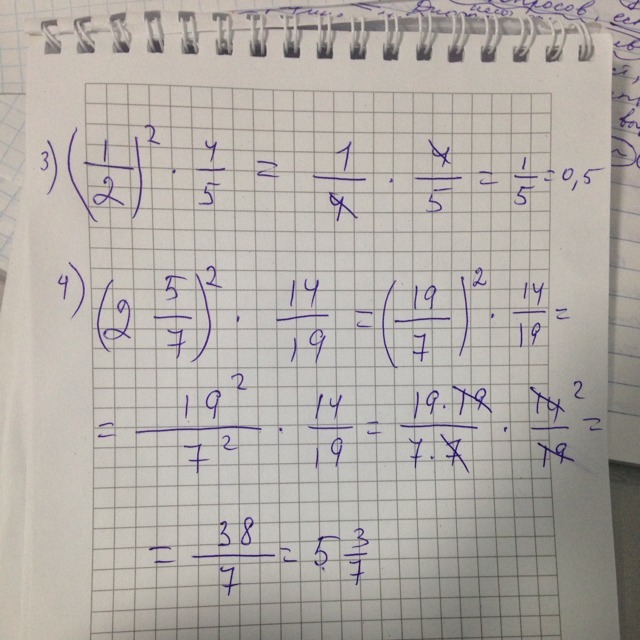 3) (1/2)² · 4/5 = 1/4 · 4/5 = 1/5 = 0,5
4) (2 5/7)² · 14/19 = (19/7)² · 14/19 =
= 19²/7² · 14/19 = 19·19/7·7 · 14/19 2 =
= 38/7 = 5 3/7